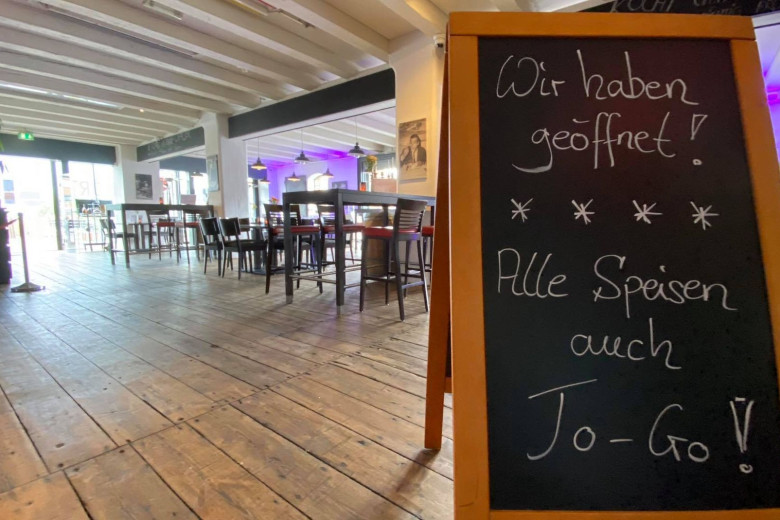 Wir haben
geöffnet!
* * * *
Alle Speisen
auch
To-Go!